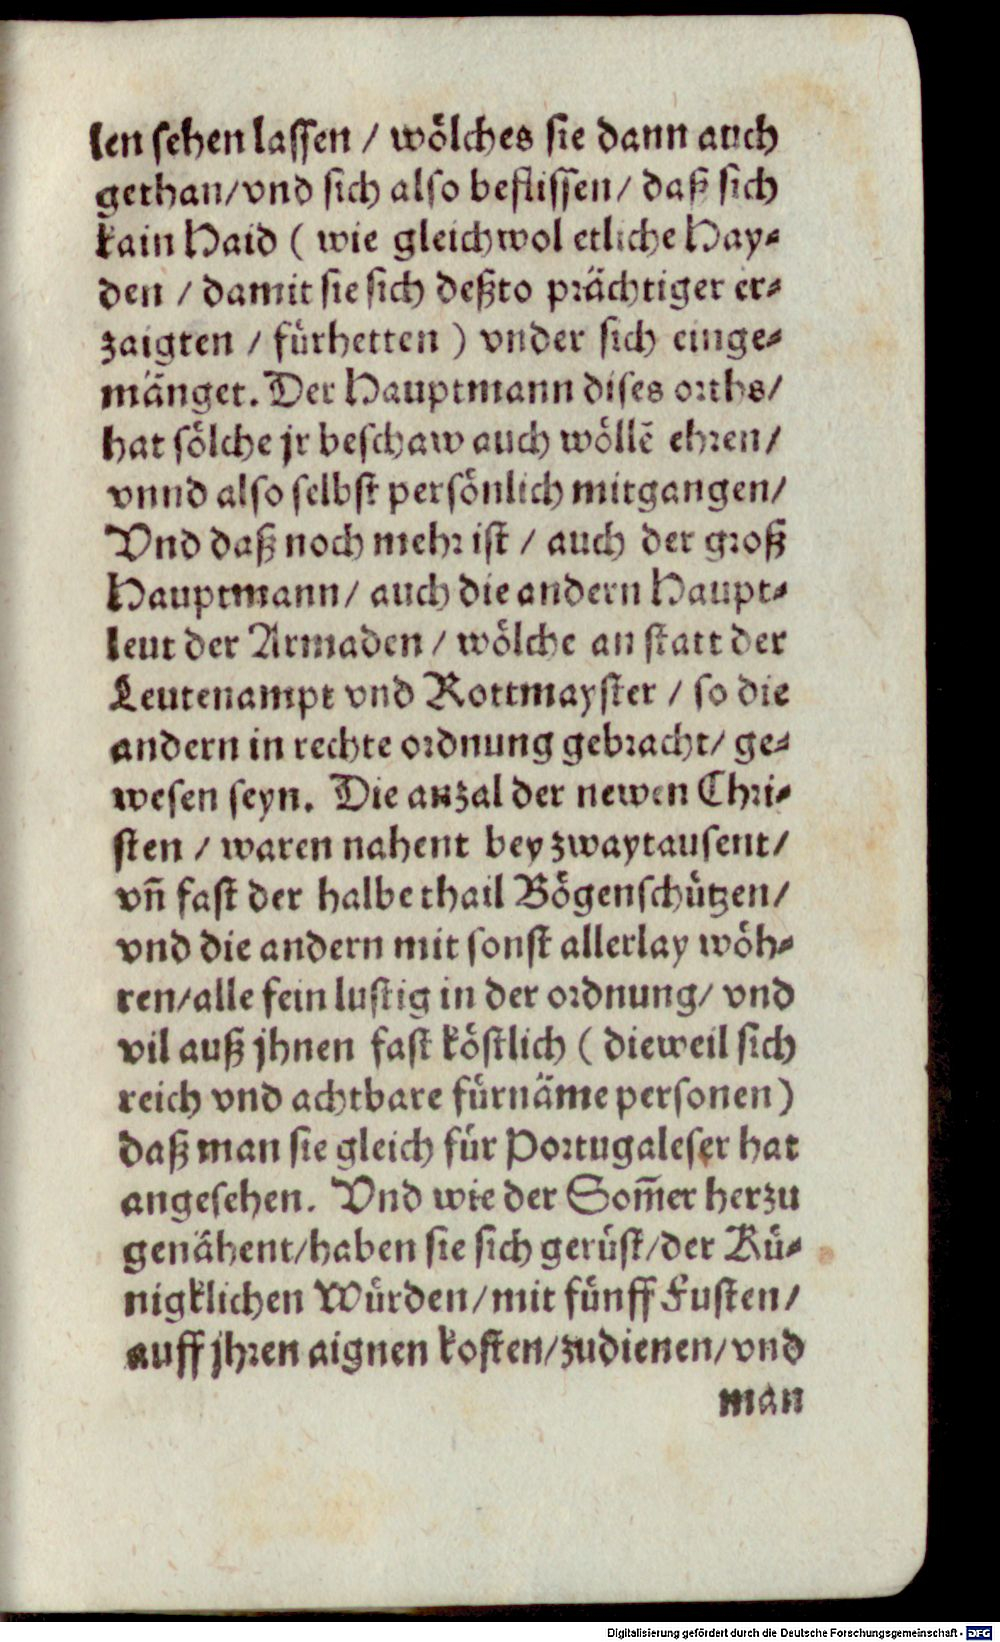 len sehen lassen / wölches sie dann auch
gethan/vnd sich also beflissen/ daß sich
kain Haid ( wie gleichwol etliche Hay⸗
den / damit sie sich deßto prächtiger er⸗
zaigten / fürhetten ) vnder sich einge⸗
mänget. Der Hauptmann dises orths/
hat sölche jr beschaw auch wöllē ehren/
vnnd also selbst persönlich mitgangen/
Vnd daß noch mehr ist / auch der groß
Hauptmann/ auch die andern Haupt⸗
leut der Armaden / wölche an statt der
Leutenampt vnd Rottmayster / so die
andern in rechte ordnung gebracht/ ge⸗
wesen seyn. Die anzal der newen Chri⸗
sten / waren nahent bey zwaytausent/
vn̄ fast der halbe thail Bögenschützen/
vnd die andern mit sonst allerlay wöh⸗
ren/alle fein lustig in der ordnung/ vnd
vil auß jhnen fast köstlich ( dieweil sich
reich vnd achtbare fürnäme personen)
daß man sie gleich für Portugaleser hat
angesehen. Vnd wie der Som̄er herzu
genähent/haben sie sich gerüst/der Kü⸗
nigklichen Würden/mit fünff Fusten/
auff jhren aignen kosten/zudienen/vnd
man
Digitalisierung gefördert durch die Deutsche Forschungsgemeinschaft - DFG